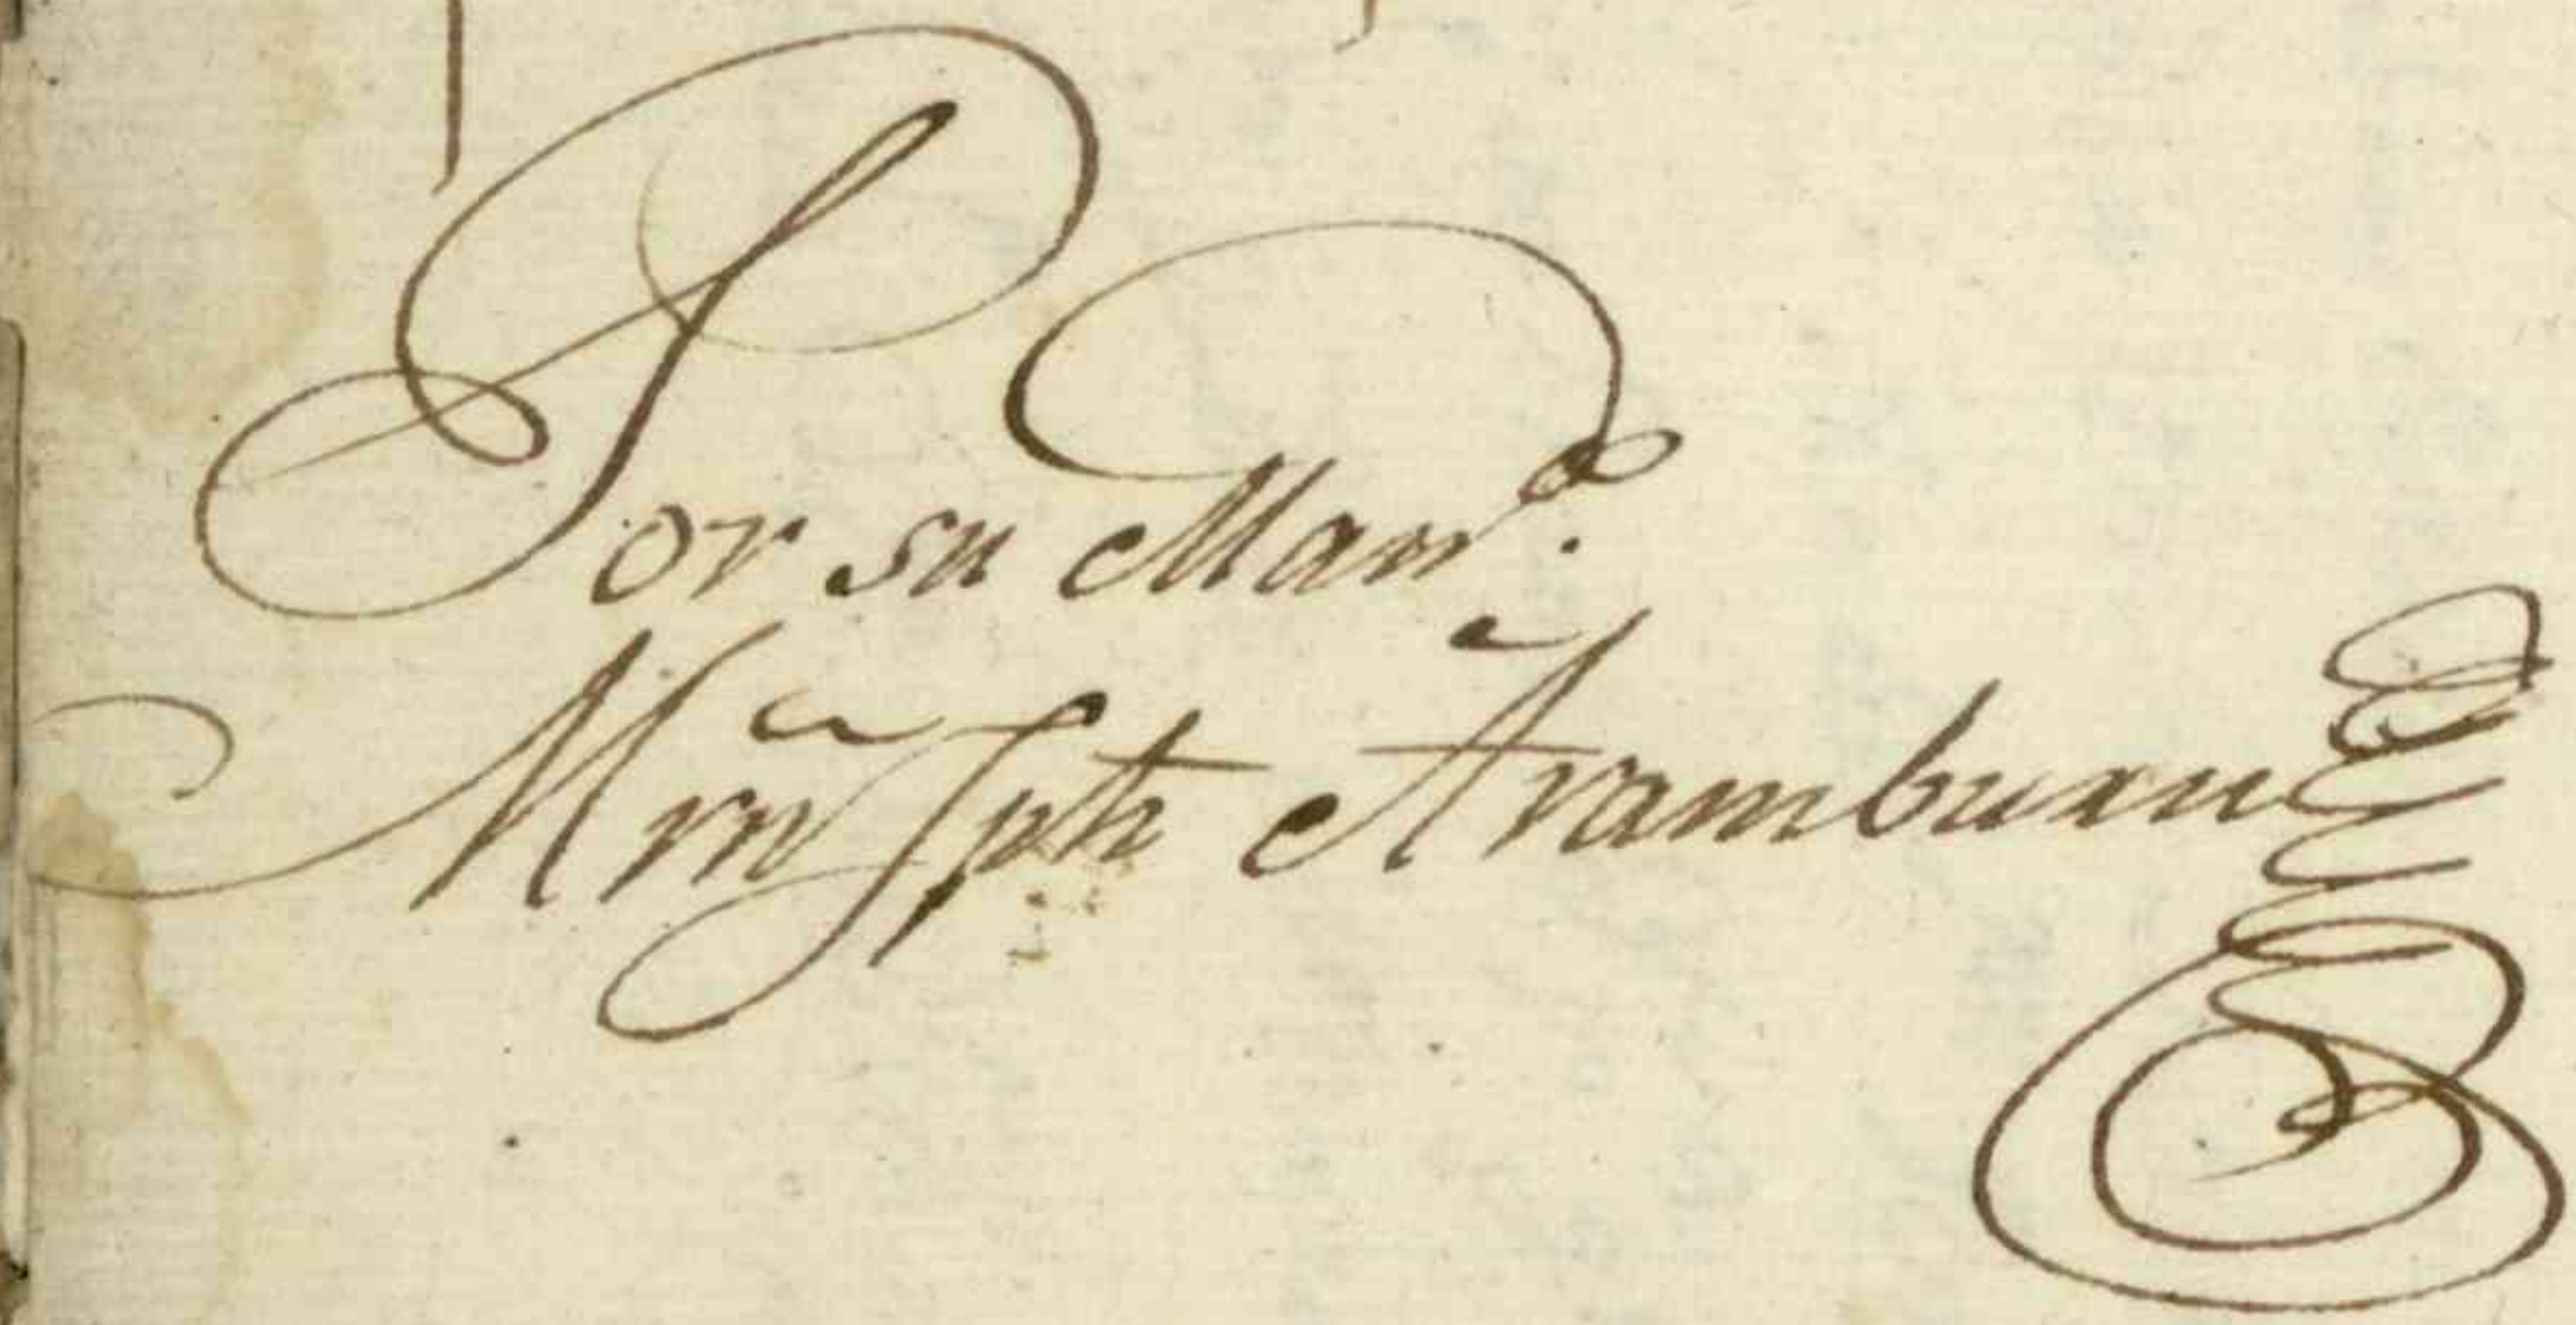 Por su Man.do
Mrñ Jph Aramburu